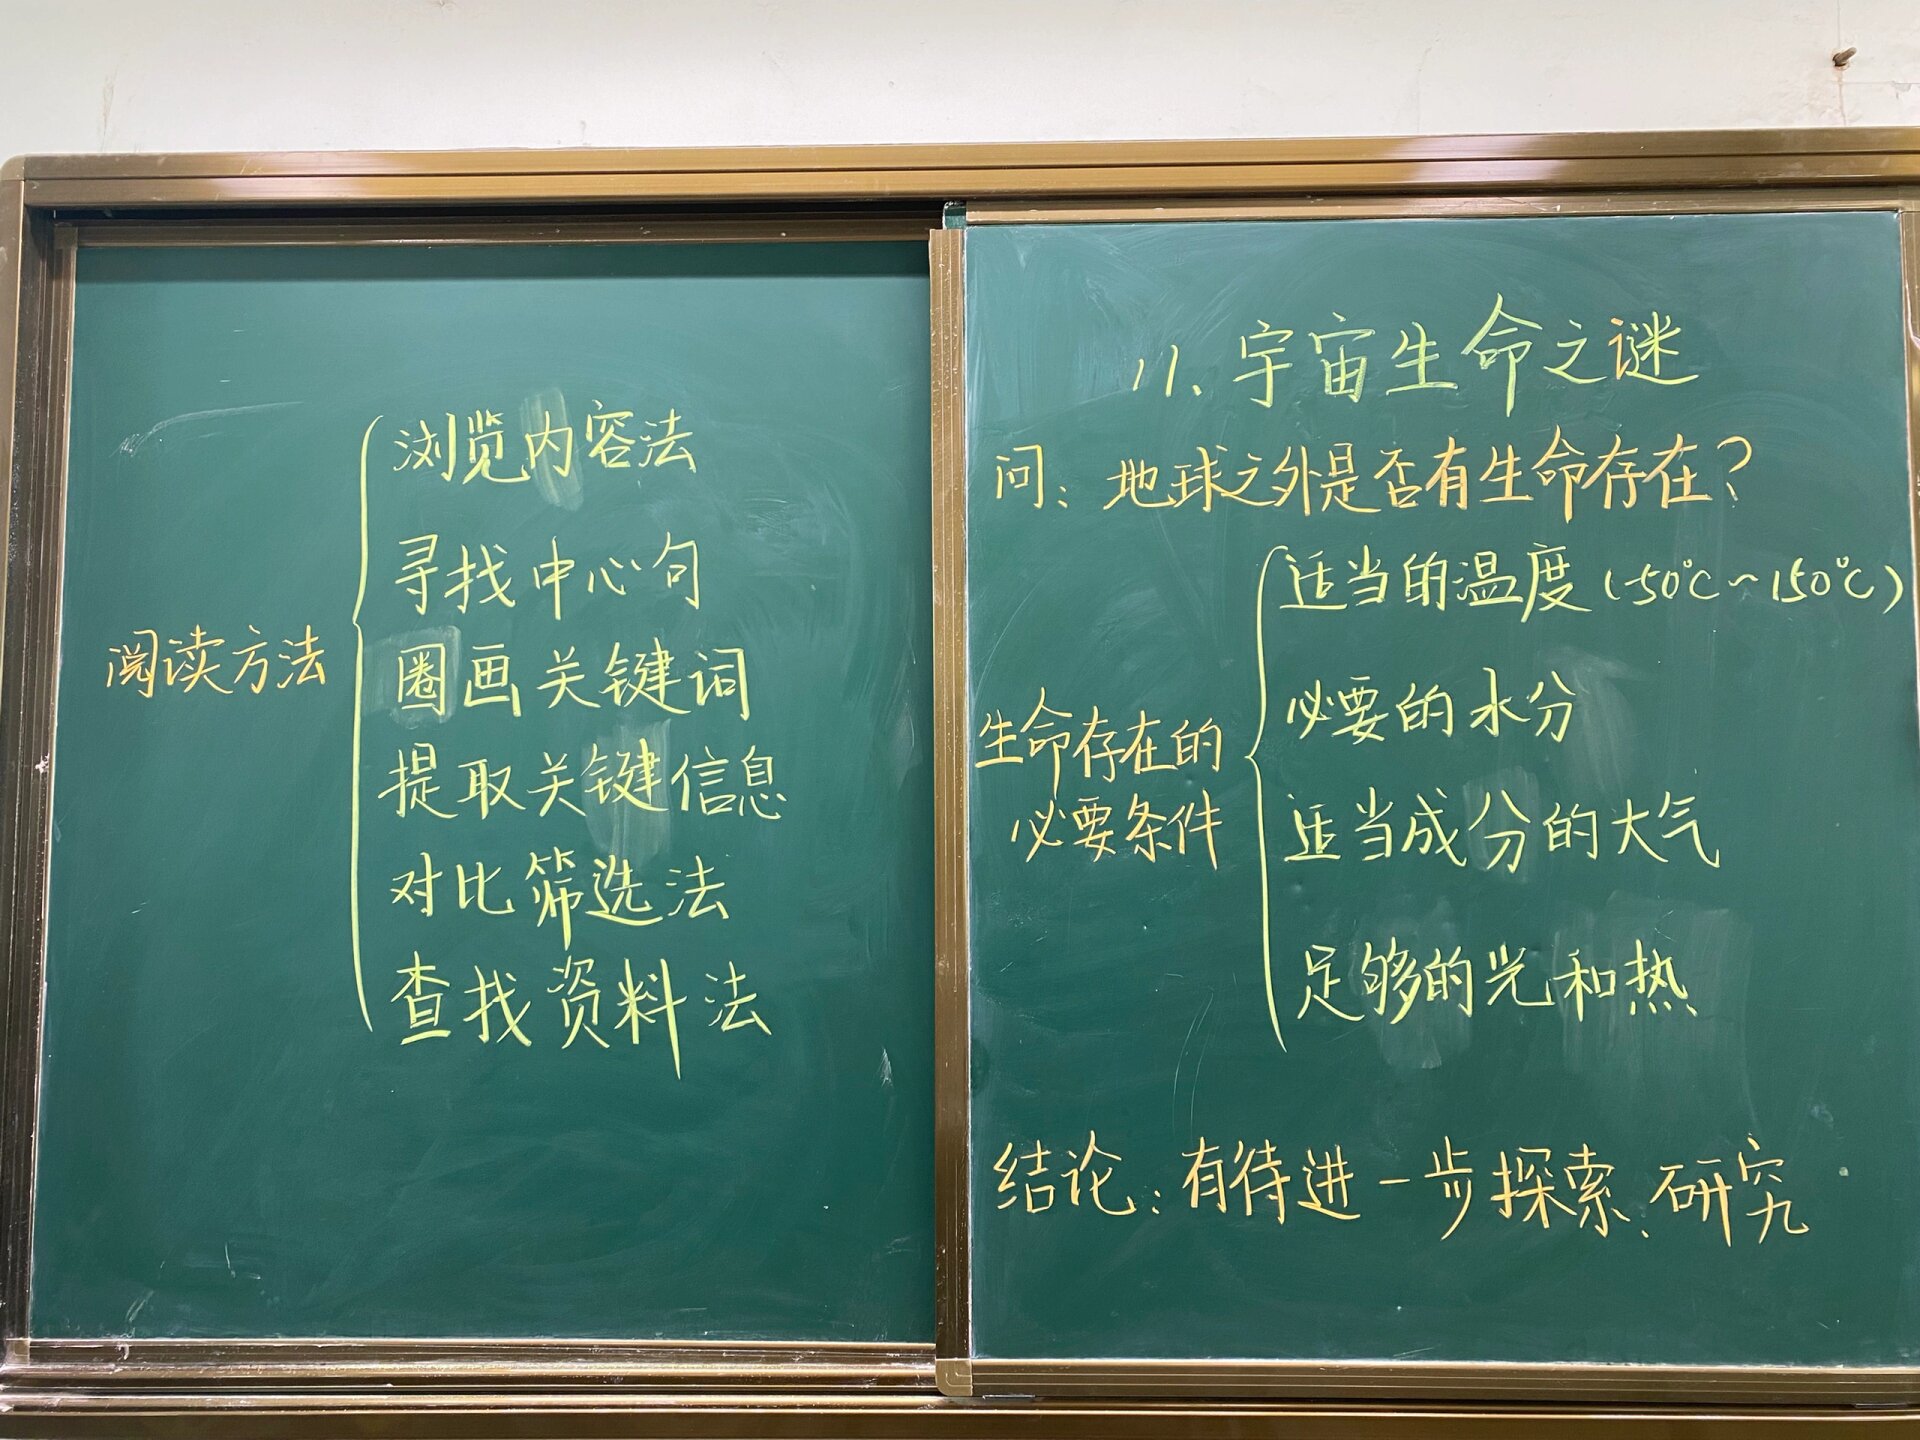 阅读方法
浏览内容法
寻找中心句
圈画关键词
提取关键信息
对比筛选法
查找资料法
11、宇宙生命之谜
问：地球之外是否有生命存在？
生命存在的
必要条件
适当的温度（-50℃～150℃）
必要的水分
适当成分的大气
足够的光和热
结论：有待进一步探索、研究